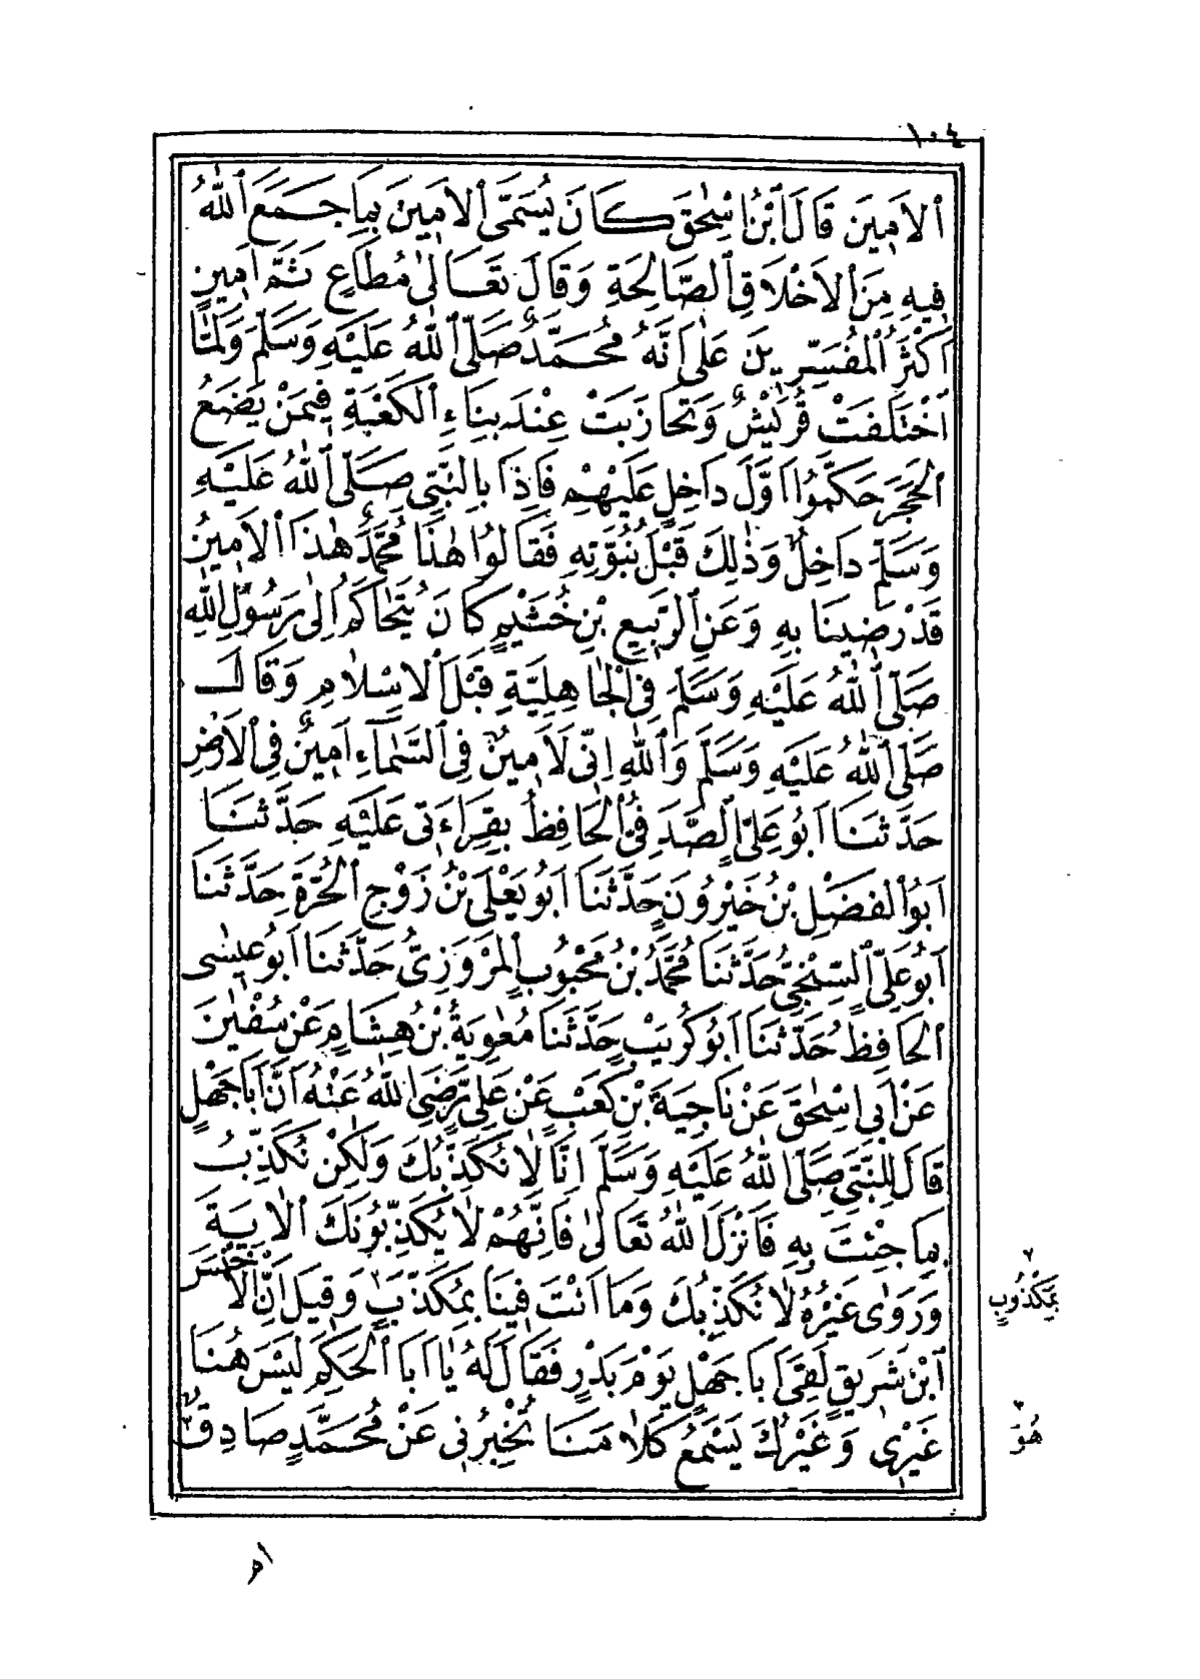 ١٠٤
اَلْاَمِينَ قَالَ ابْنُ اِسْحٰقَ كَانَ يُسَمَّى الْاَمِينَ بِمَا جَمَعَ اللّٰهُ
فِيهِ مِنَ الْاَخْلَاقِ الصَّالِحَةِ وَقَالَ تَعَالٰى مُطَاعٍ ثَمَّ اَمِينٍ
اَكْثَرُ الْمُفَسِّرِينَ عَلٰى اَنَّهُ مُحَمَّدٌ صَلَّى اللّٰهُ عَلَيْهِ وَسَلَّمَ وَلَمَّا
اخْتَلَفَتْ قُرَيْشٌ وَتَحَازَبَتْ عِنْدَ بِنَاءِ الْكَعْبَةِ فِيمَنْ يَضَعُ
الْحَجَرَ حَكَّمُوا اَوَّلَ دَاخِلٍ عَلَيْهِمْ فَاِذَا بِالنَّبِيِّ صَلَّى اللّٰهُ عَلَيْهِ
وَسَلَّمَ دَاخِلٌ وَذٰلِكَ قَبْلَ نُبُوَّتِهِ فَقَالُوا هٰذَا مُحَمَّدٌ هٰذَا الْاَمِينُ
قَدْ رَضِينَا بِهِ وَعَنِ الرَّبِيعِ بْنِ خُثَيْمٍ كَانَ يُتَحَاكَمُ اِلٰى رَسُولِ اللّٰهِ
صَلَّى اللّٰهُ عَلَيْهِ وَسَلَّمَ فِي الْجَاهِلِيَّةِ قَبْلَ الْاِسْلَامِ وَقَالَ
صَلَّى اللّٰهُ عَلَيْهِ وَسَلَّمَ وَاللّٰهِ اِنِّي لَاَمِينٌ فِي السَّمَآءِ اَمِينٌ فِي الْاَرْضِ
حَدَّثَنَا اَبُو عَلِيٍّ الصَّدَفِيُّ الْحَافِظُ بِقِرَاءَتِي عَلَيْهِ حَدَّثَنَا
اَبُو الْفَضْلِ بْنُ خَيْرُونَ حَدَّثَنَا اَبُو يَعْلَى بْنُ زَوْجِ الْحُرَّةِ حَدَّثَنَا
اَبُو عَلِيٍّ السِّنْجِيُّ حَدَّثَنَا مُحَمَّدُ بْنُ مَحْبُوبٍ الْمَرْوَزِيُّ حَدَّثَنَا اَبُو عِيسٰى
الْحَافِظُ حَدَّثَنَا اَبُو كُرَيْبٍ حَدَّثَنَا مُعٰوِيَةُ بْنُ هِشَامٍ عَنْ سُفْيٰنَ
عَنْ اَبِي اِسْحٰقَ عَنْ نَاجِيَةَ بْنِ كَعْبٍ عَنْ عَلِيٍّ رَضِيَ اللّٰهُ عَنْهُ اَنَّ اَبَا جَهْلٍ
قَالَ لِلنَّبِيِّ صَلَّى اللّٰهُ عَلَيْهِ وَسَلَّمَ اِنَّا لَا نُكَذِّبُكَ وَلٰكِنْ نُكَذِّبُ
بِمَا جِئْتَ بِهِ فَاَنْزَلَ اللّٰهُ تَعَالٰى فَاِنَّهُمْ لَا يُكَذِّبُونَكَ الْاٰيَةَ
وَرَوٰى غَيْرُهُ لَا نُكَذِّبُكَ وَمَا اَنْتَ فِينَا بِمُكَذَّبٍ وَقِيلَ اِنَّ الْاَخْنَسَ
ابْنَ شَرِيقٍ لَقِيَ اَبَا جَهْلٍ يَوْمَ بَدْرٍ فَقَالَ لَهُ يَا اَبَا الْحَكَمِ لَيْسَ هُنَا
غَيْرِي وَغَيْرُكَ يَسْمَعُ كَلَامَنَا تُخْبِرُنِي عَنْ مُحَمَّدٍ صَادِقٌ
بِمَكْذُوبٍ
هُوَ
ام